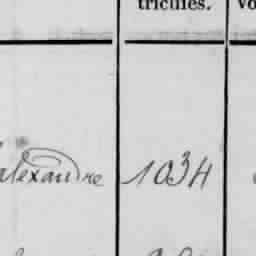 tricules.
alexandre 1034